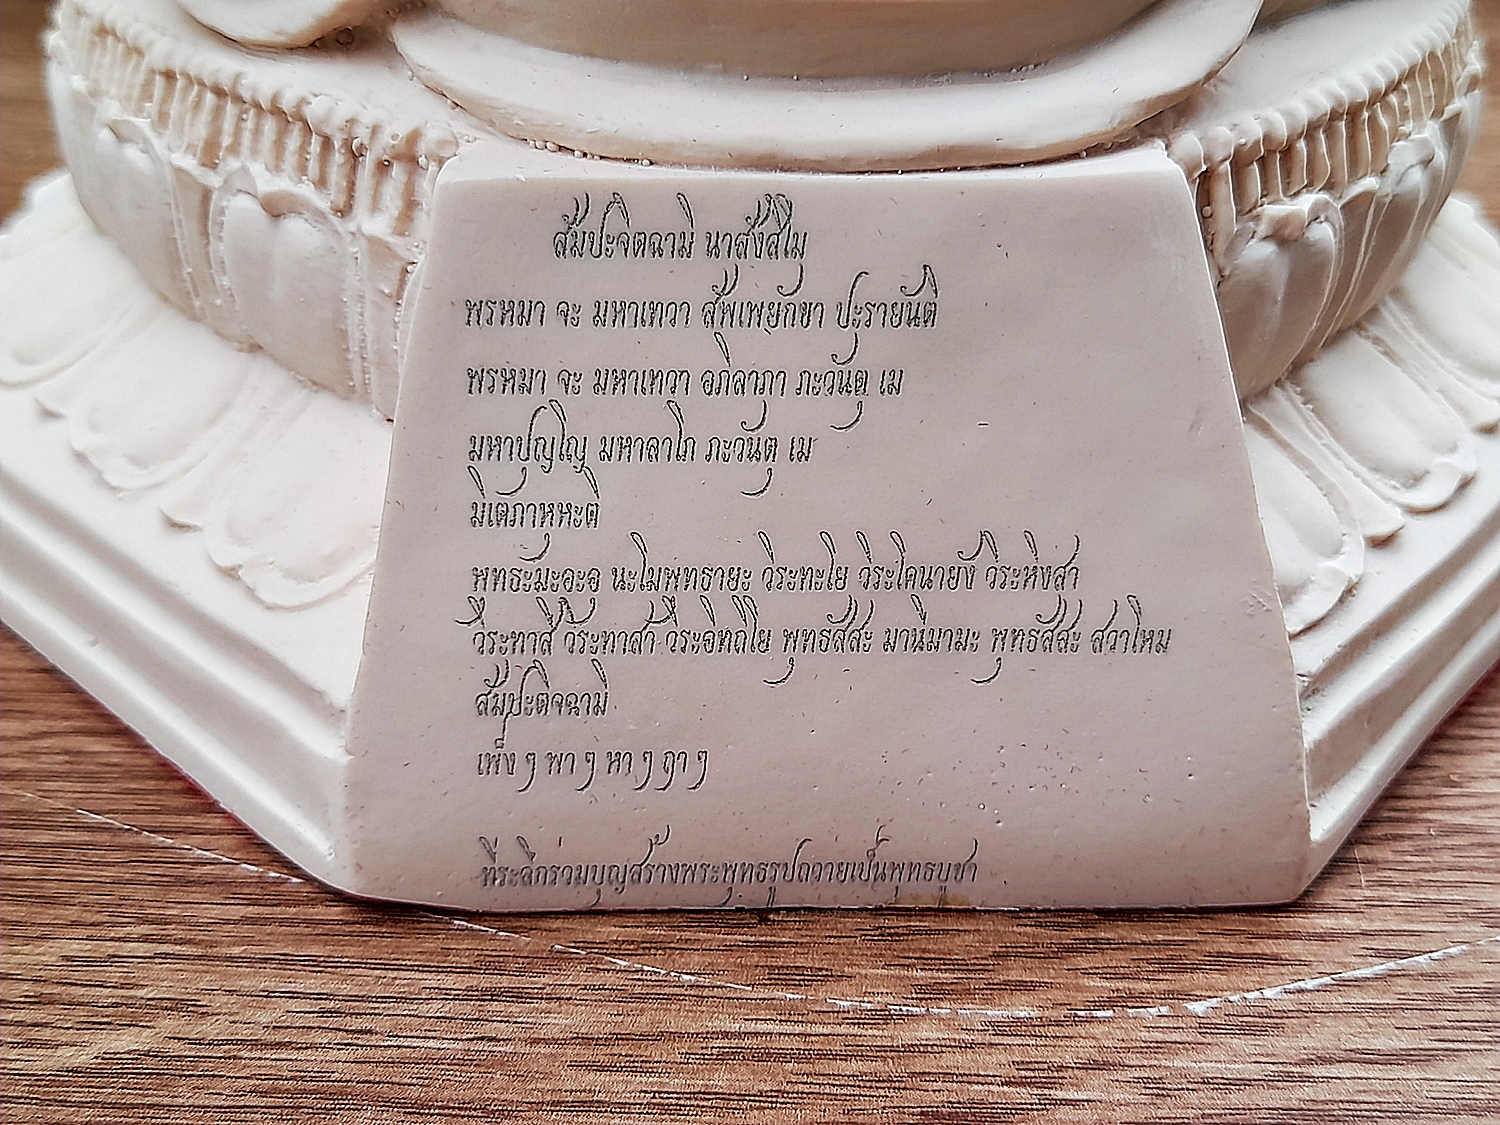 สัมปะจิตฉามิ นาสังสิโม
พรหมา จะ มหาเทวา สัพเพยักขา ปะรายันติ
พรหมา จะ มหาเทวา อภิลาภา ภะวันตุ เม
มหาปุญโญ มหาลาโภ ภะวันตุ เม
มิเตภาหุหะติ
พุทธะมะอะอุ นะโมพุทธายะ วิระทะโย วิระโคนายัง วิระหิงสา
วีระทาสี วีระทาสา วีระอิตถิโย พุทธัสสะ มานีมามะ พุทธัสสะ สวาโหม
สัมปะติจฉามิ
เพ็งๆ พาๆ หาๆ ฤาๆ
ที่ระลึกร่วมบุญสร้างพระพุทธรูปถวายเป็นพุทธบูชา